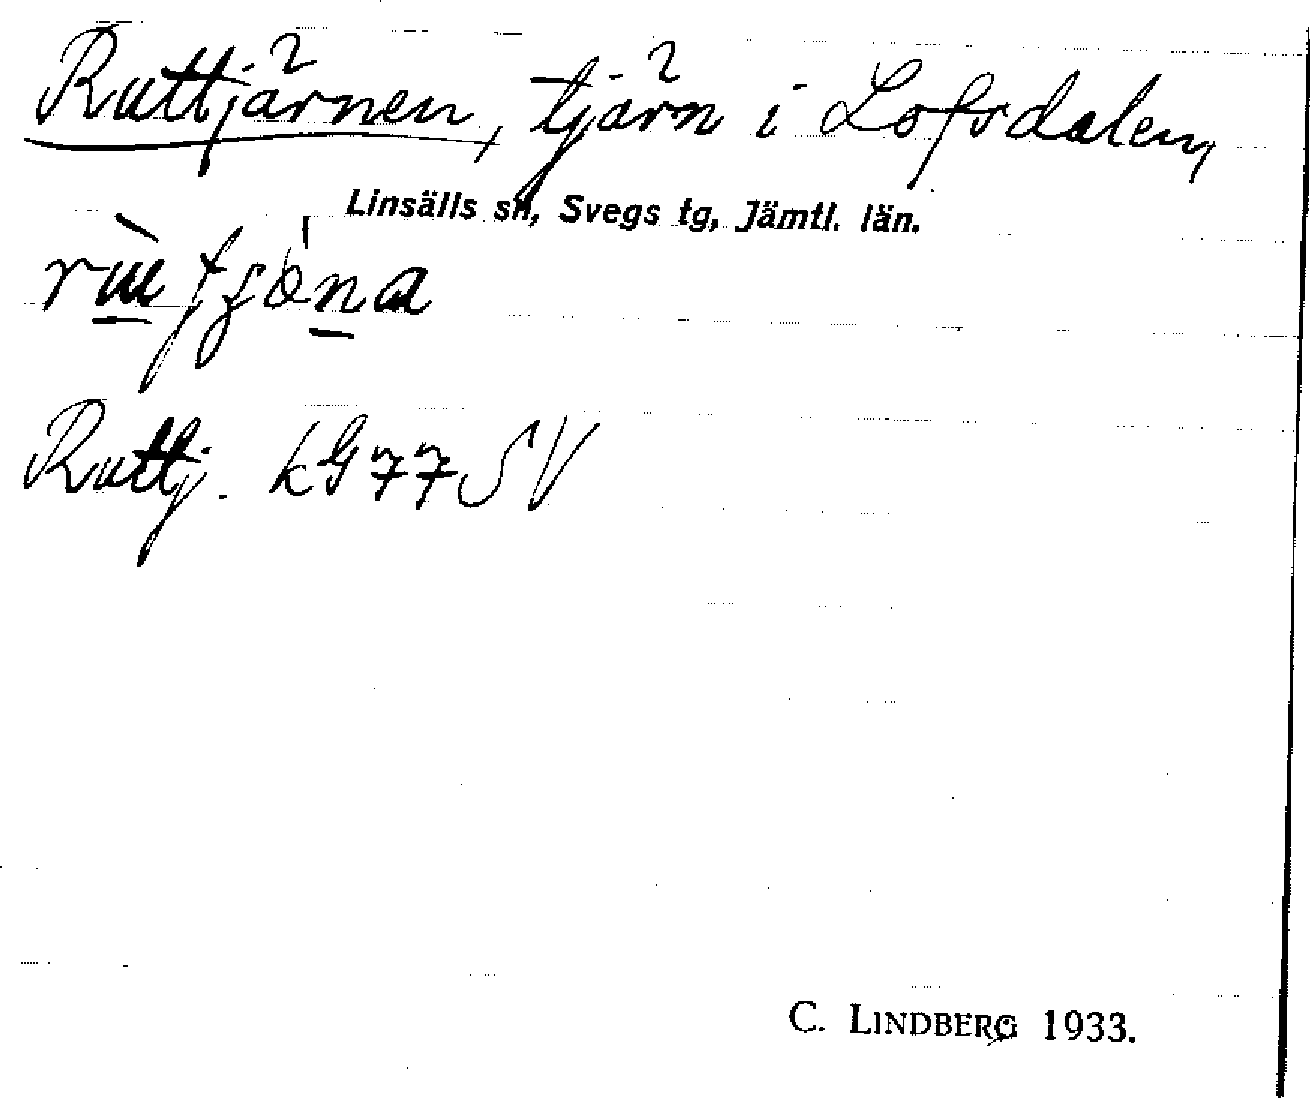 Ruttjärnen, tjärn i Lofsdalen,
Linsälls sn, Svegs tg, Jämtl. län.
Ruttj. kG 77 SV
C. LINDBERG 1933.